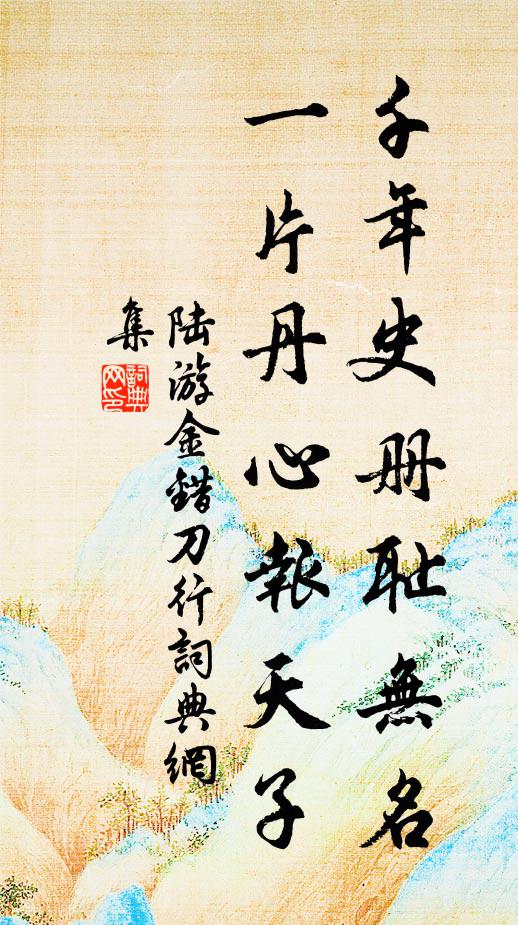 千年史册耻無名
一片丹心報天子
陆游金錯刀行詞典網
集
詞典
网印